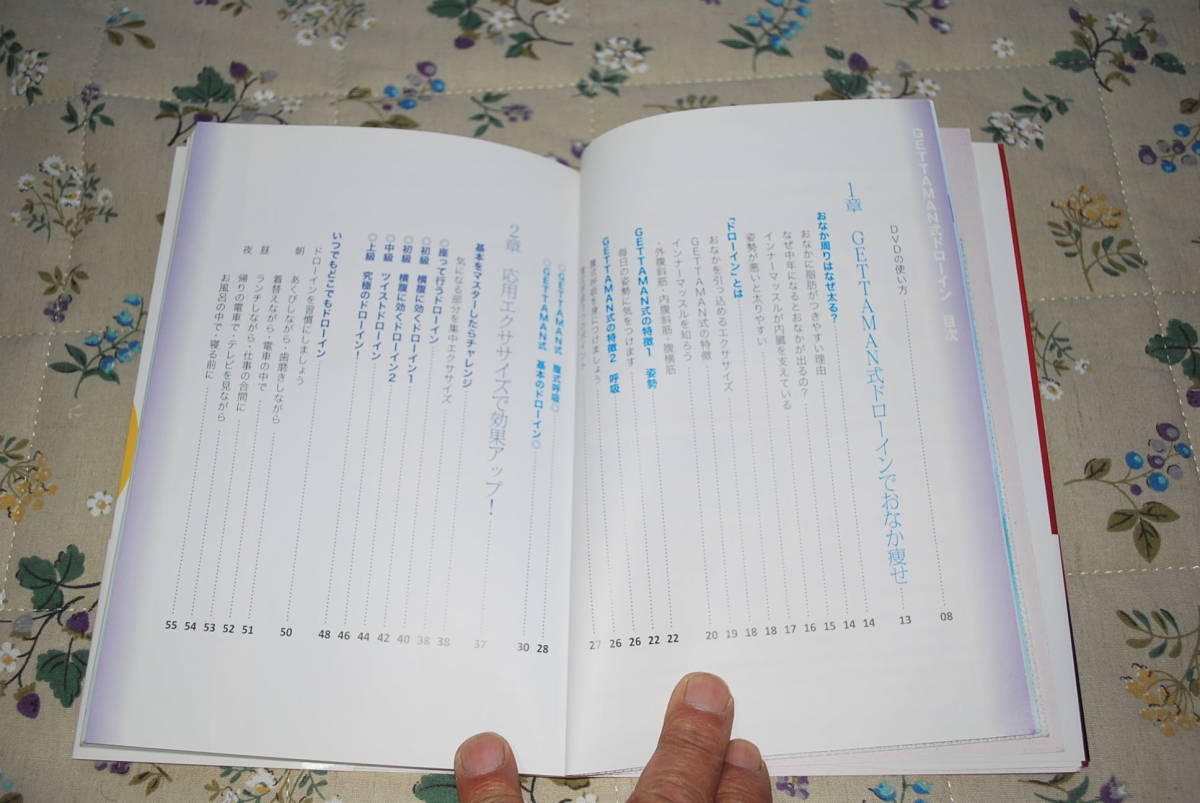 GETTAMAN式ドローイン 目次
DVDの使い方 08
1章 GETTAMAN式ドローインでおなか痩せ 13
おなか周りはなぜ太る? 14
おなかに脂肪がつきやすい理由 14
なぜ中年になるとおなかが出るの? 15
インナーマッスルが内臓を支えている 16
姿勢が悪いと太りやすい 17
「ドローイン」とは 18
おなかを引っ込めるエクササイズ 18
GETTAMAN式の特徴 19
インナーマッスルを知ろう 20
・外腹斜筋・内腹斜筋・腹横筋
GETTAMAN式の特徴1 姿勢 22
毎日の姿勢に気をつけます 22
GETTAMAN式の特徴2 呼吸 26
腹式呼吸を身につけましょう 26
27
◎GETTAMAN式 腹式呼吸◎ 28
◎GETTAMAN式 基本のドローイン◎ 30
2章 応用エクササイズで効果アップ! 37
基本をマスターしたらチャレンジ 38
気になる部分を集中エクササイズ 38
◎座って行うドローイン 40
◎初級 横腹に効くドローイン1 42
◎初級 横腹に効くドローイン2 44
◎中級 ツイストドローイン 46
◎上級 究極のドローイン! 48
いつでもどこでもドローイン 50
ドローインを習慣にしましょう
朝 あくびしながら・歯磨きしながら 51
着替えながら・電車の中で 52
昼 ランチしながら・仕事の合間に 53
夜 帰りの電車で・テレビを見ながら 54
お風呂の中で・寝る前に 55